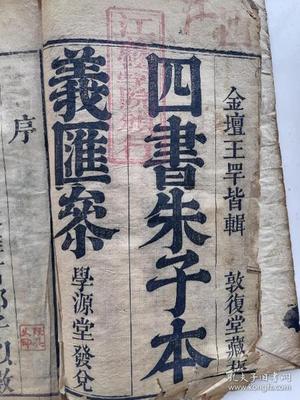 金壇王罕皆輯 敦復堂藏板
四書朱子本
義匯叅
學源堂發兌
序
孔夫子旧书网